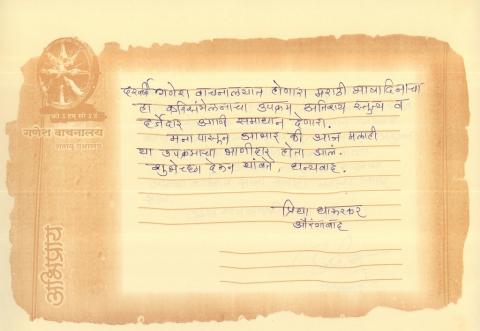 दरवर्षी गणेश वाचनालयात होणारा मराठी भाषादिनाचा
हा कविसंमेलनाचा उपक्रम अतिशय स्तुत्य व
दर्जेदार आणि समाधान देणारा.
मना पासून आभार की आज मलाही
या उपक्रमाचा भागीदार होता आलं.
शुभेच्छा देऊन थांबते, धन्यवाद.
प्रिया धारूरकर
औरंगाबाद
गणेश वाचनालय
अभिप्राय